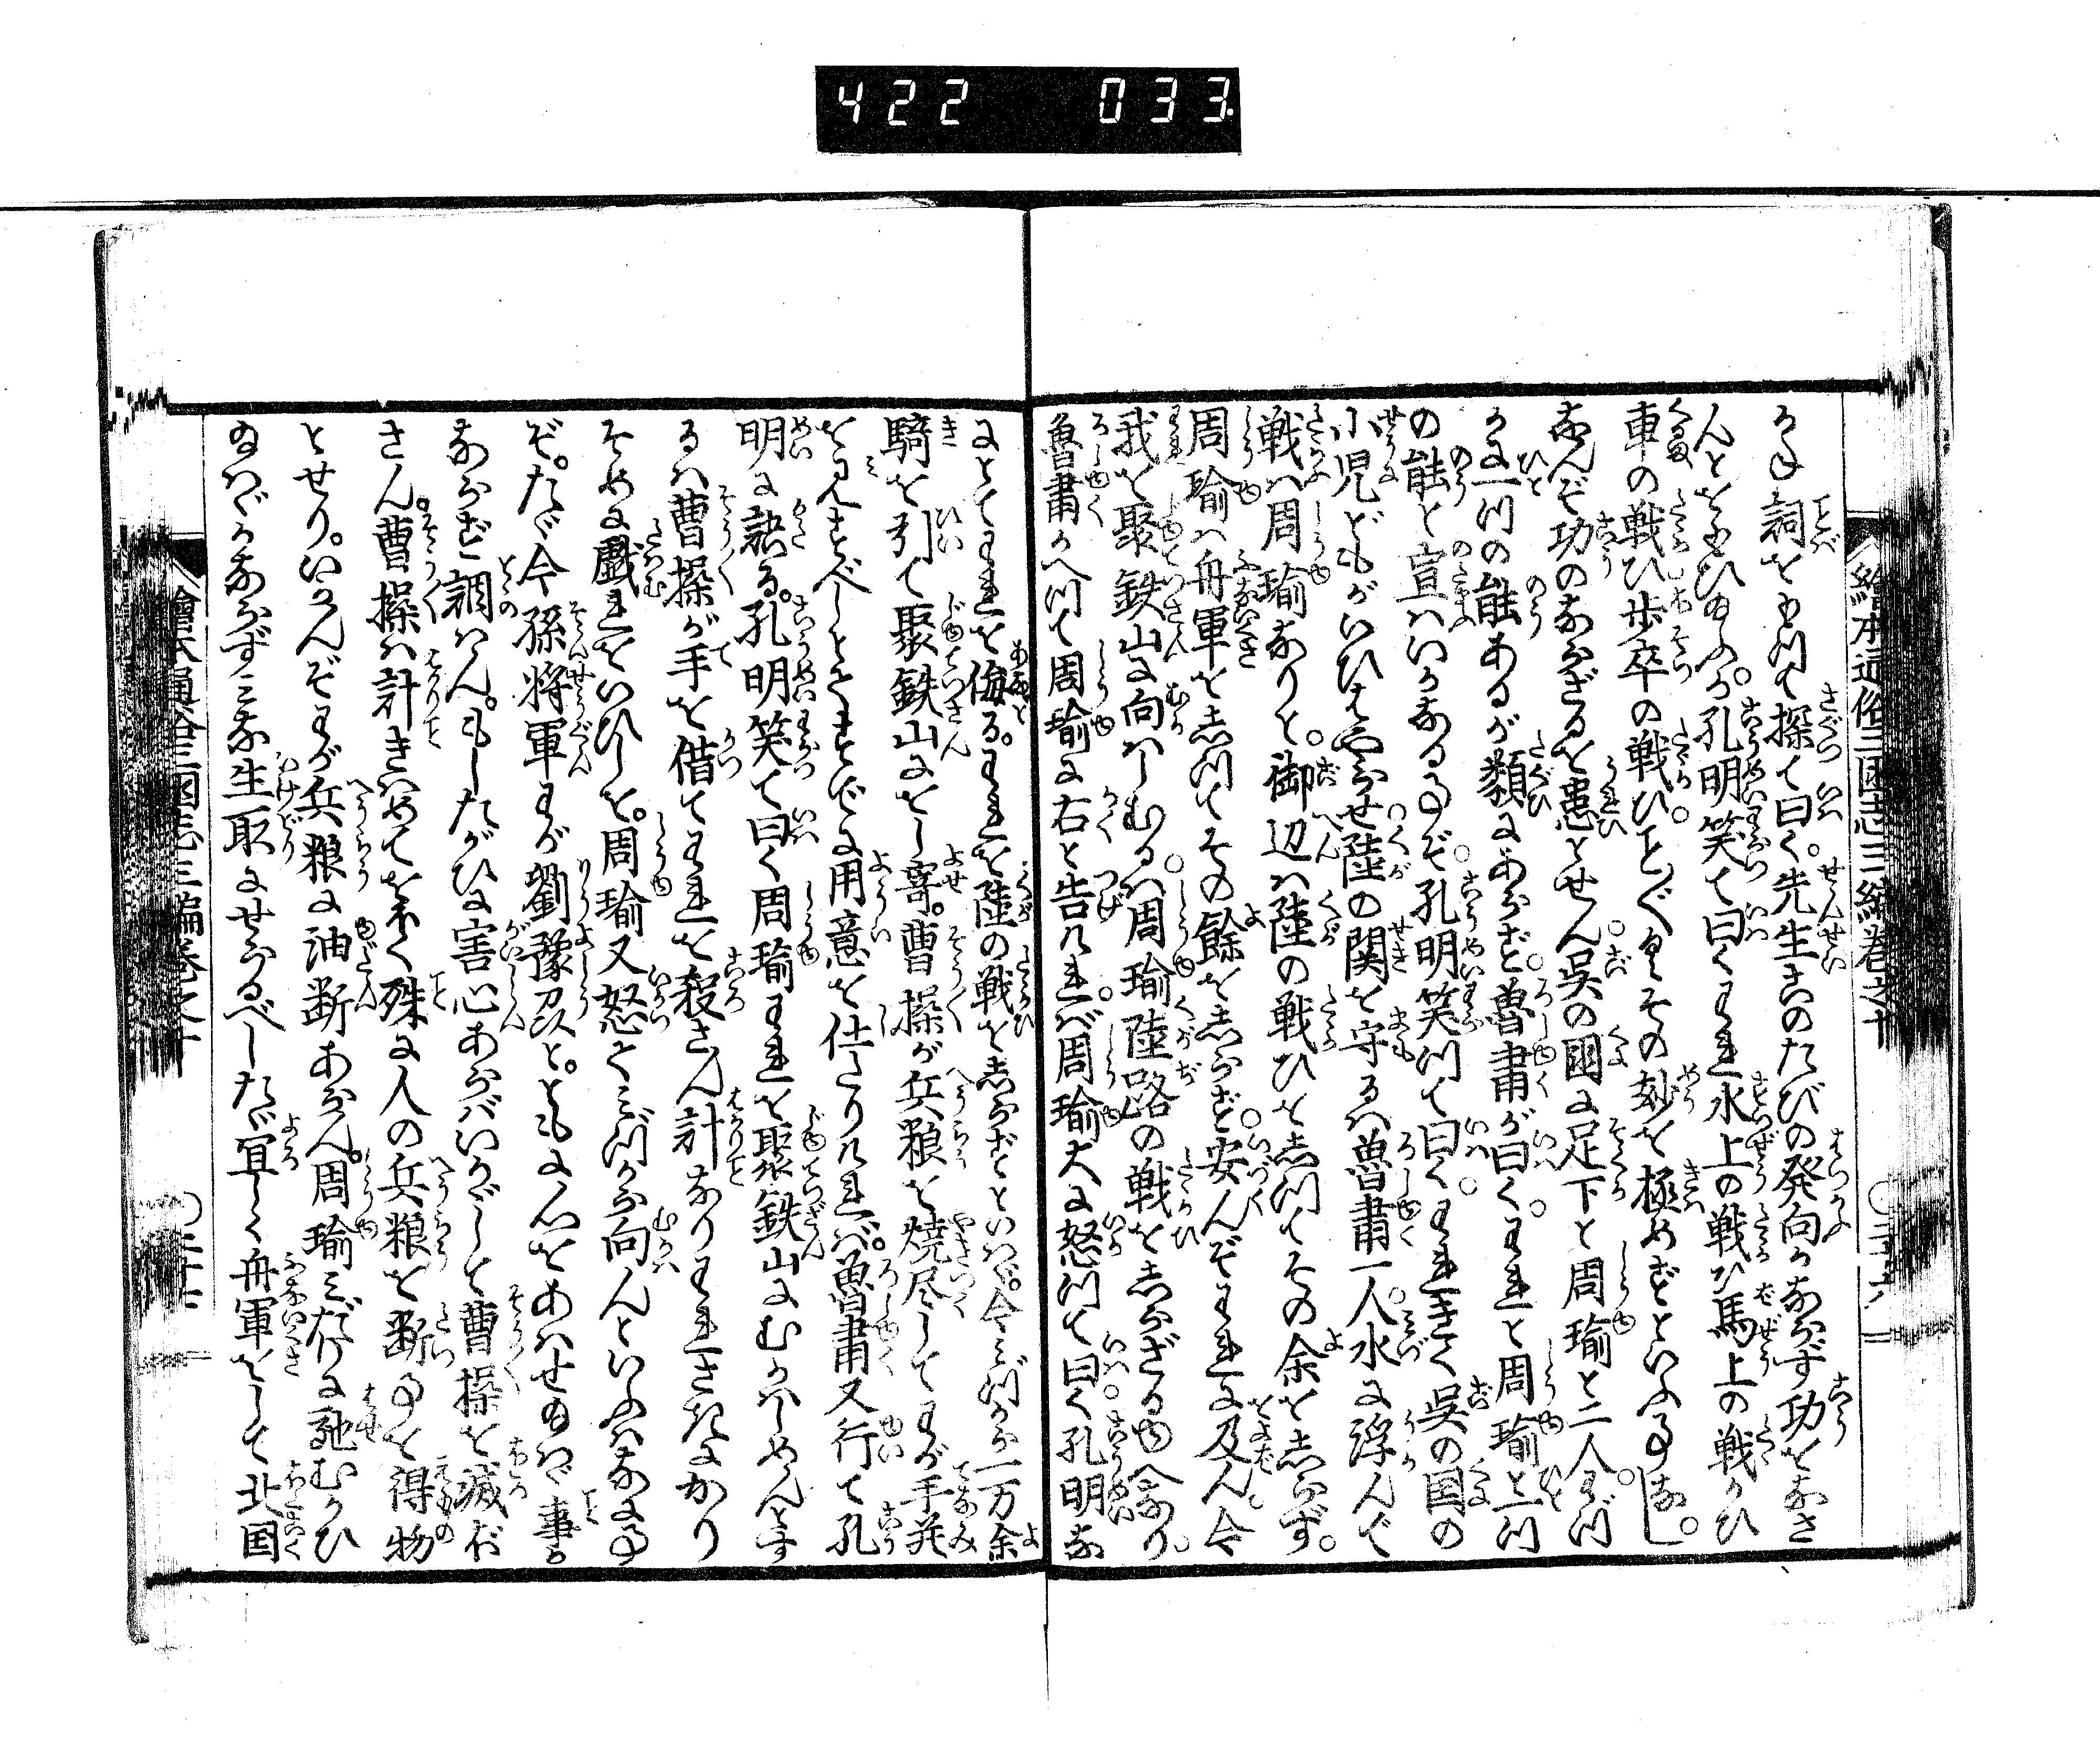 422 033
繪本通俗三国志三編巻之十
かね詞をもつて探て曰く先生このたびの発向かならず功をなさ
んとをもひ玉ふか孔明笑て曰くわれ水上の戦ひ馬上の戦ひ
車の戦ひ歩卒の戦ひことごとくその妙を極めずといふ事なし
なんぞ功のならざるを患とせん呉の国に足下と周瑜と二人わづ
かに一つの能あるが類にあらず魯粛が曰くわれと周瑜と一つ
の能と宣はいかなる事ぞ孔明笑つて曰くわれきく呉の国の
小児どもがいひはやらせ陸の関を守るは魯粛一人水に浮んで
戦は周瑜なりと御辺は陸の戦ひを志つてその余を志らず
周瑜は舟軍を志つてその餘を志らず安んぞわれに及ん今
我を聚鉄山に向はしむるは周瑜陸路の戦を志らざるゆへなり
魯粛かへつて周瑜に右と告れば周瑜大に怒つて曰く孔明な
にとてわれを侮るわれを陸の戦を志らずといはゞ今みづから一万余
騎を引て聚鉄山にをし寄曹操が兵粮を焼尽してわが手並
を見すべしとてすでに用意を仕たりければ魯粛又行て孔
明に訴る孔明笑て曰く周瑜われを聚鉄山にむかはしめんとす
るは曹操が手を借てわれを殺さん計なりわれさきにかり
そめに戯れをいひしを周瑜又怒てみづから向んといふはなに事
ぞたゞ今孫将軍わが劉豫州とともに心をあはせ玉はゞ事か
ならず調はんもしたがひに害心あらばいかゞして曹操を滅ぼ
さん曹操は計きはめてをほく殊に人の兵粮を断事を得物
とせりいかんぞわが兵粮に油断あらん周瑜みだりに馳むかひ
玉はゞかならずみな生取にせらるべしたゞ宜しく舟軍をして北国
繪本通俗三國志三編巻之十